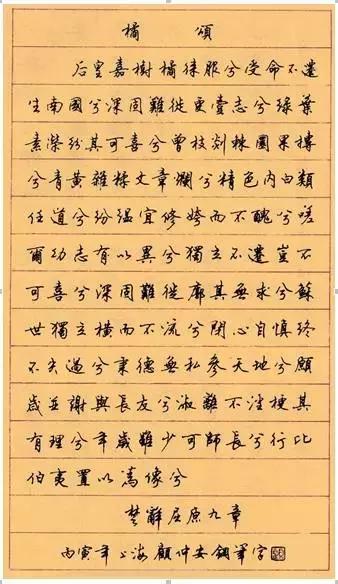 橘頌
后皇嘉樹橘徠服兮受命不遷
生南國兮深固難徙更壹志兮綠葉
素榮紛其可喜兮曾枝剡棘圓果摶
兮青黃雜糅文章爛兮精色內白類
任道兮紛縕宜修姱而不醜兮嗟
爾幼志有以異兮獨立不遷豈不
可喜兮深固難徙廓其無求兮蘇
世獨立橫而不流兮閉心自慎終
不失過兮秉德無私參天地兮願
歲並謝與長友兮淑離不淫梗其
有理兮年歲雖少可師長兮行比
伯夷置以為像兮
楚辭屈原九章
丙寅年上海顧仲安鋼筆字